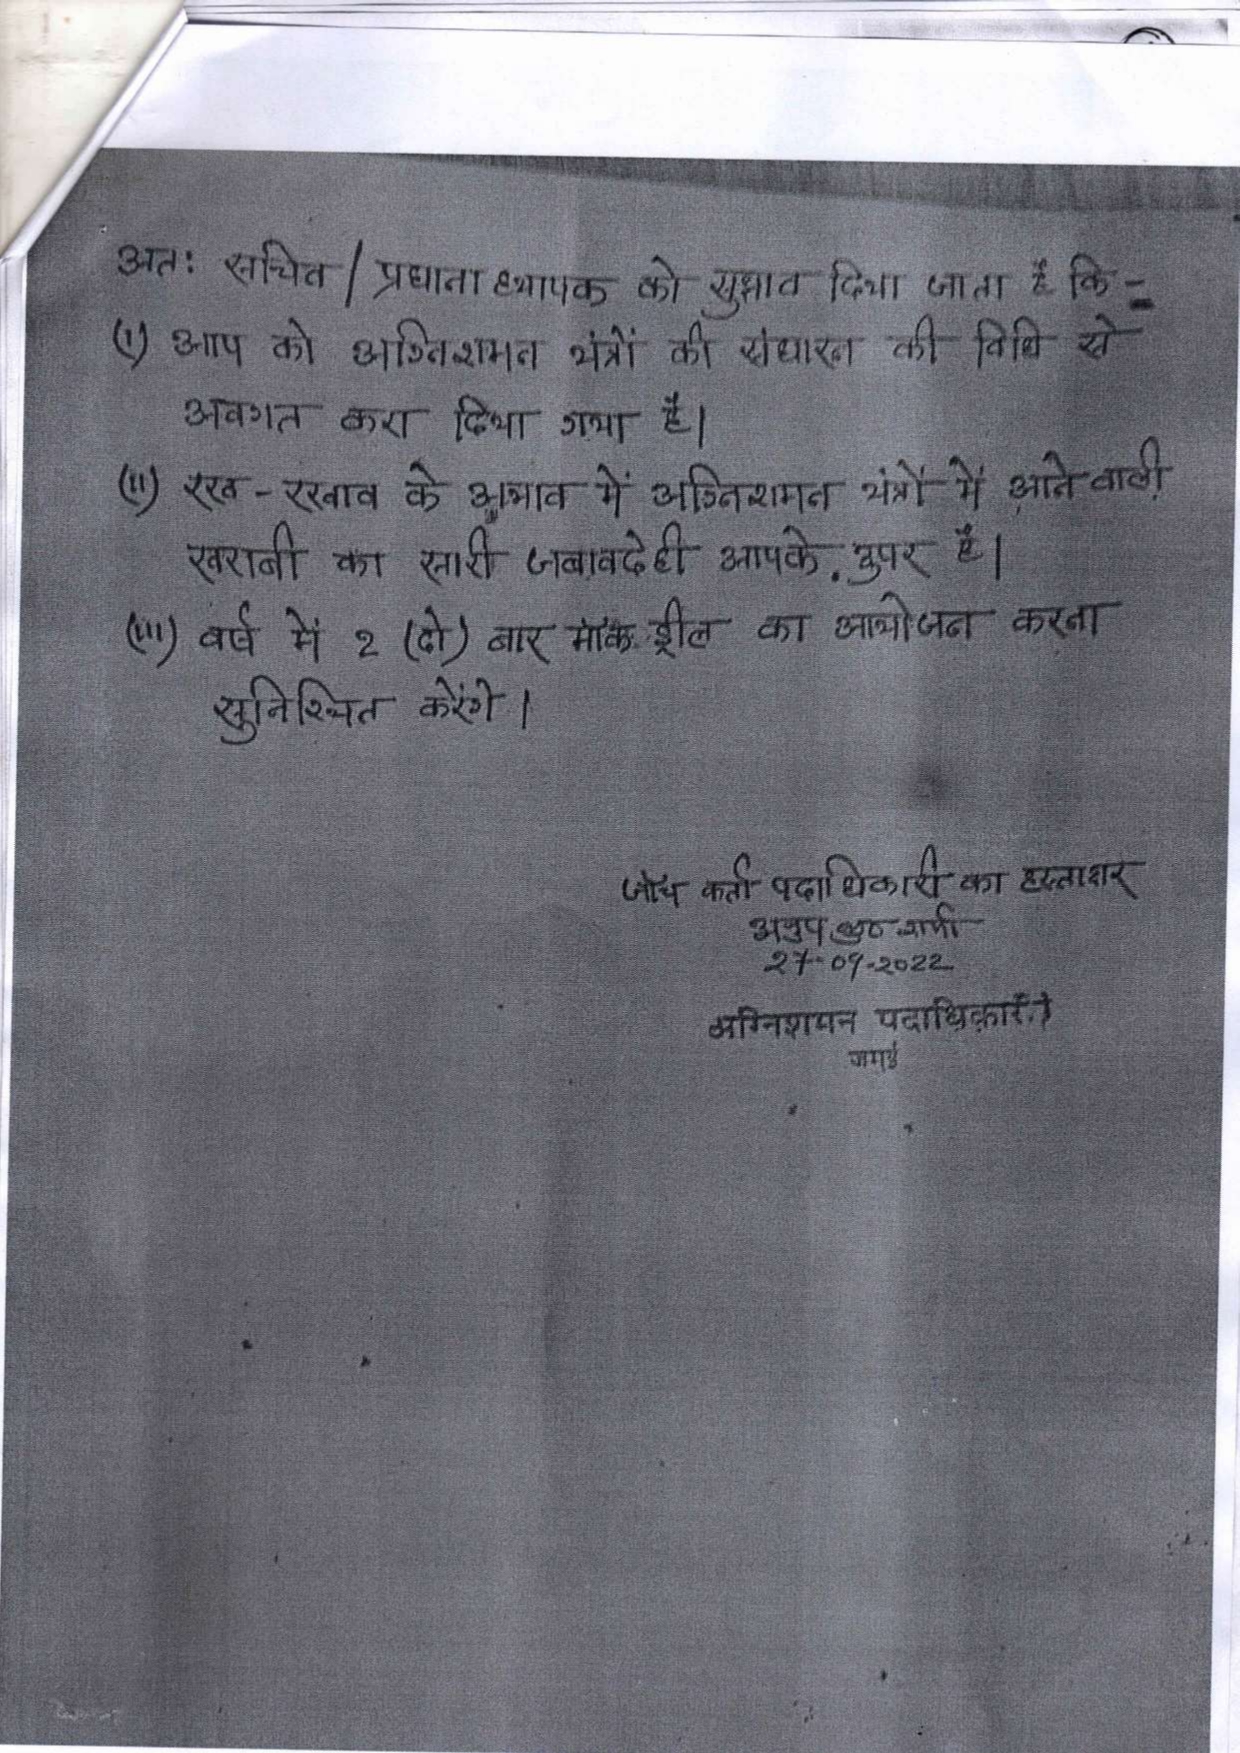 अतः सचिव / प्रधानाध्यापक को सुझाव दिया जाता है कि -
(i) आप को अग्निशमन यंत्रों की संधारन की विधि से
अवगत करा दिया गया है।
(ii) रख - रखाव के अभाव में अग्निशमन यंत्रों में आने वाली
खराबी का सारी जबावदेही आपके उपर है।
(iii) वर्ष में 2 (दो) बार मॉक ड्रील का आयोजन करना
सुनिश्चित करेंगे।
जाँच कर्ता पदाधिकारी का हस्ताक्षर
अनुप
27-09-2022
अग्निशमन पदाधिकारी
जमुई